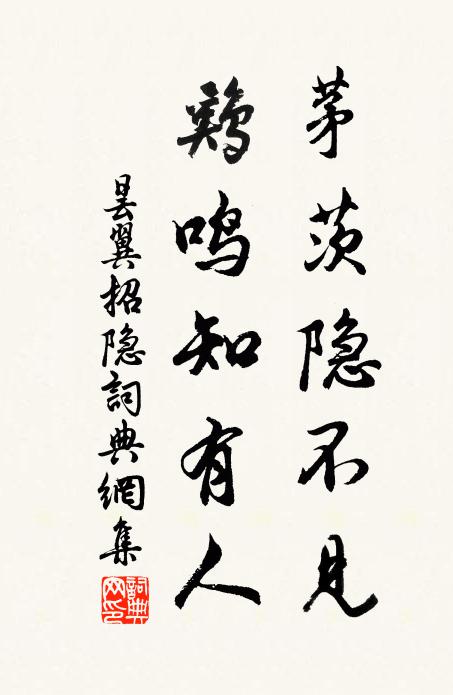 茅茨隐不见
鷄鸣知有人
昙翼招隐詞典網集
詞典网印